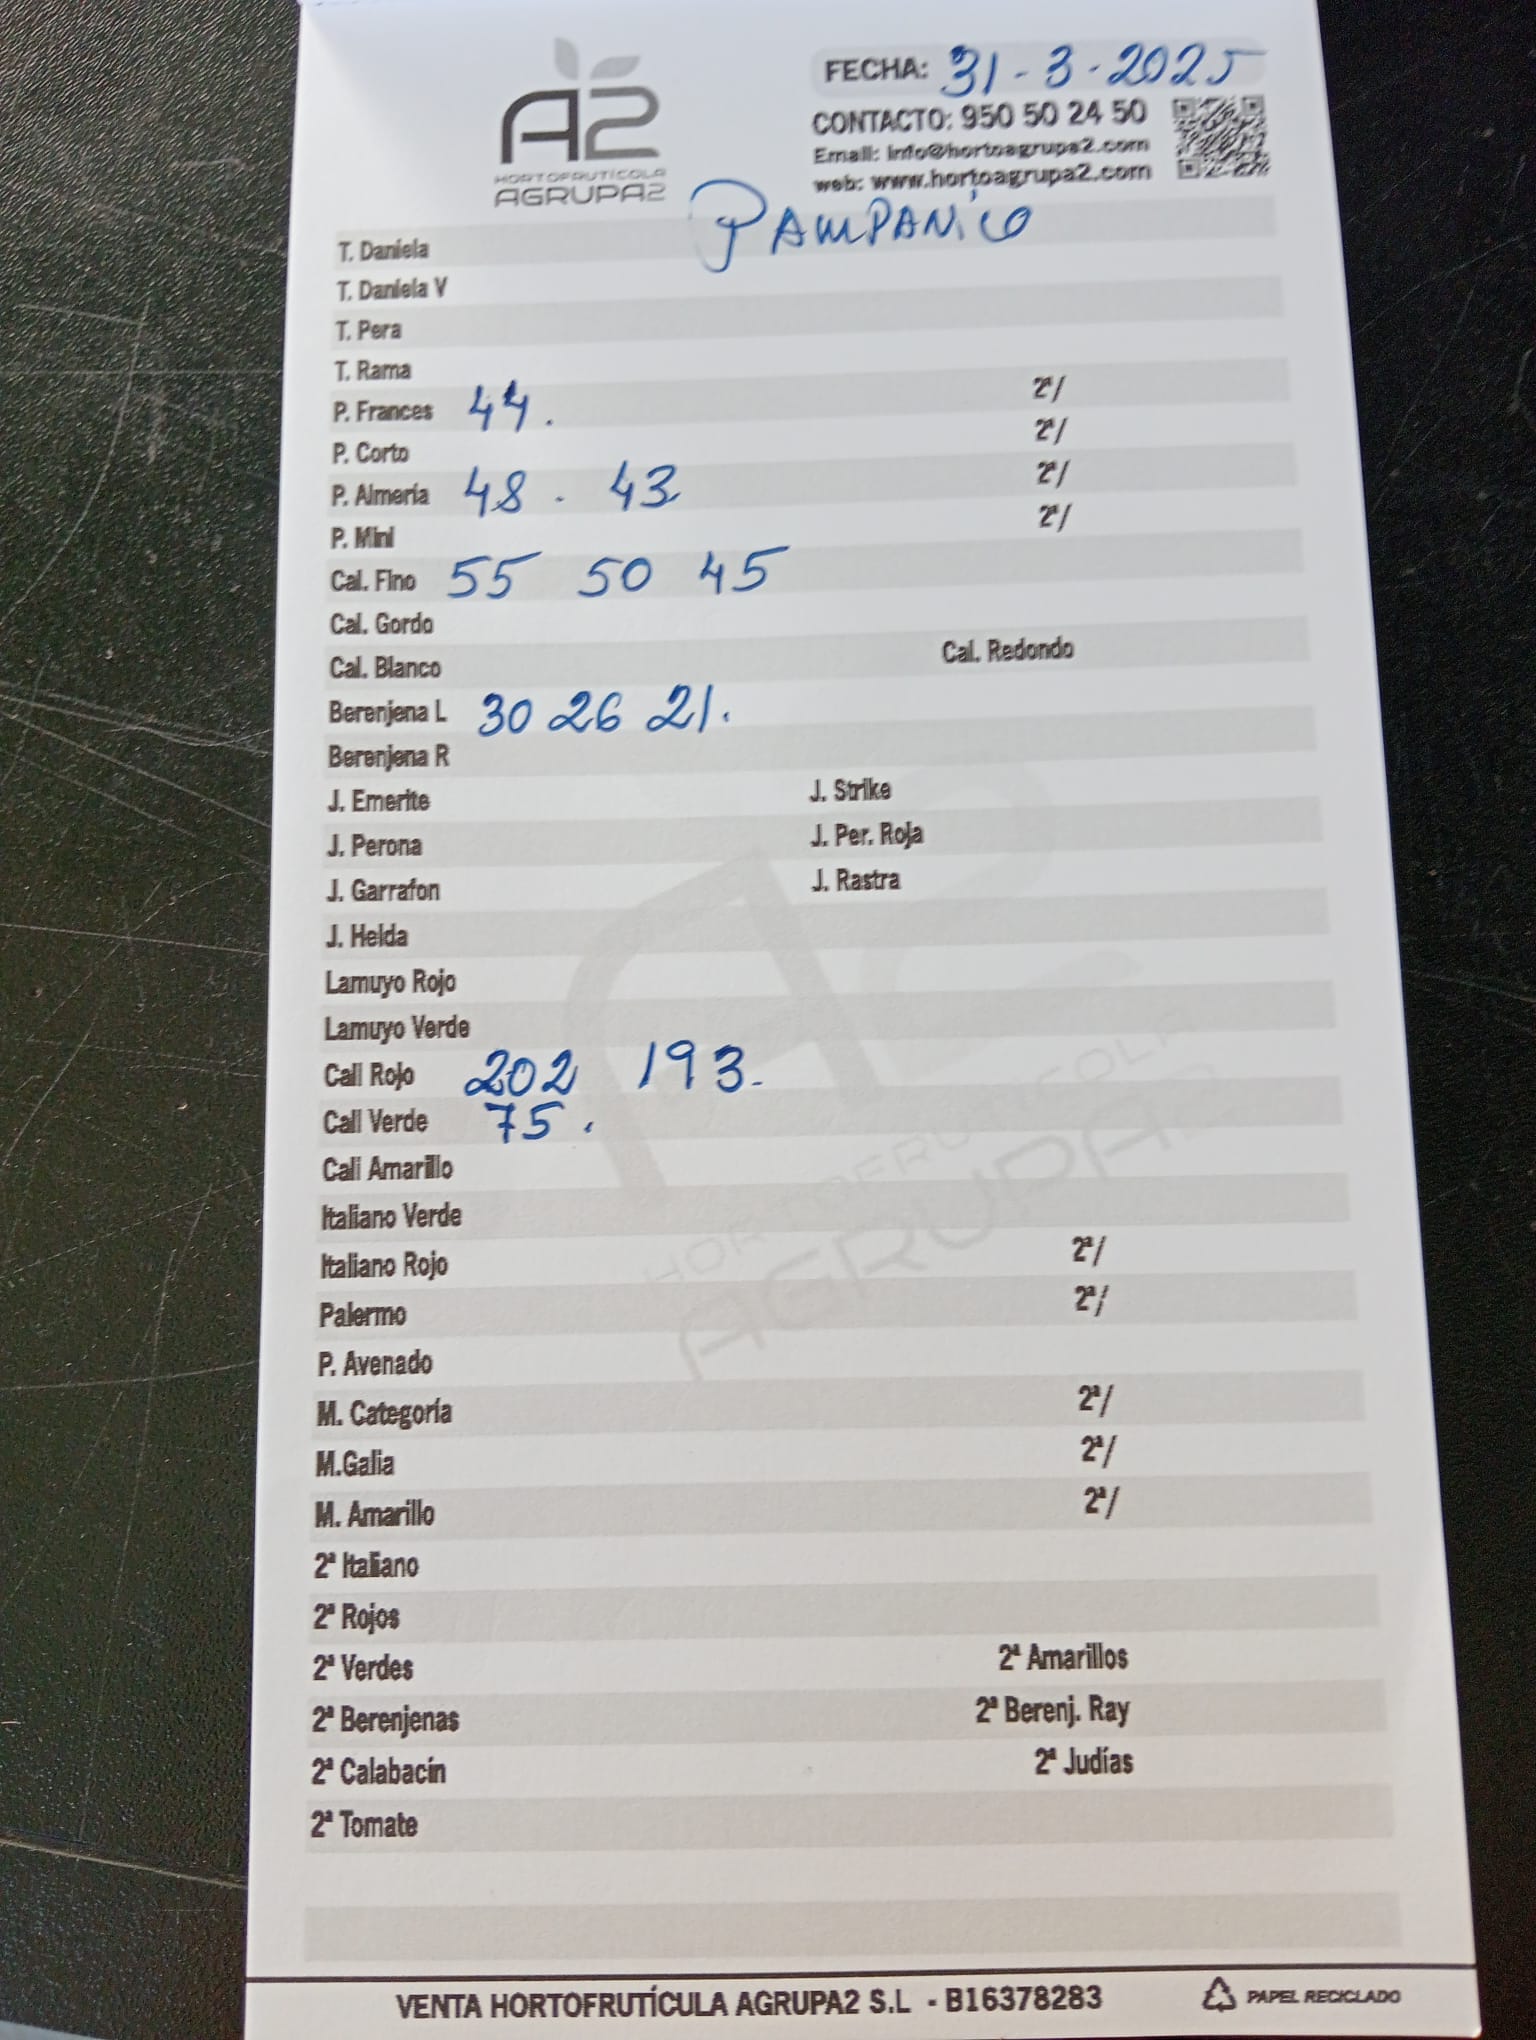 A2
HORTOFRUTÍCOLA
AGRUPA2
FECHA: 31-3-2025
CONTACTO: 950 50 24 50
Email: info@hortoagrupa2.com
web: www.hortoagrupa2.com
PAMPANICO
T. Daniela
T. Daniela V
T. Pera
T. Rama
P. Frances 44. 2ª/
P. Corto 2ª/
P. Almería 48 . 43 2ª/
P. Mini 2ª/
Cal. Fino 55 50 45
Cal. Gordo
Cal. Blanco Cal. Redondo
Berenjena L 30 26 21.
Berenjena R
J. Emerite J. Strike
J. Perona J. Per. Roja
J. Garrafon J. Rastra
J. Helda
Lamuyo Rojo
Lamuyo Verde
Cali Rojo 202 193.
Cali Verde 75.
Cali Amarillo
Italiano Verde
Italiano Rojo 2ª/
Palermo 2ª/
P. Avenado
M. Categoría 2ª/
M.Galia 2ª/
M. Amarillo 2ª/
2ª Italiano
2ª Rojos
2ª Verdes 2ª Amarillos
2ª Berenjenas 2ª Berenj. Ray
2ª Calabacín 2ª Judías
2ª Tomate
VENTA HORTOFRUTÍCULA AGRUPA2 S.L - B16378283
PAPEL RECICLADO